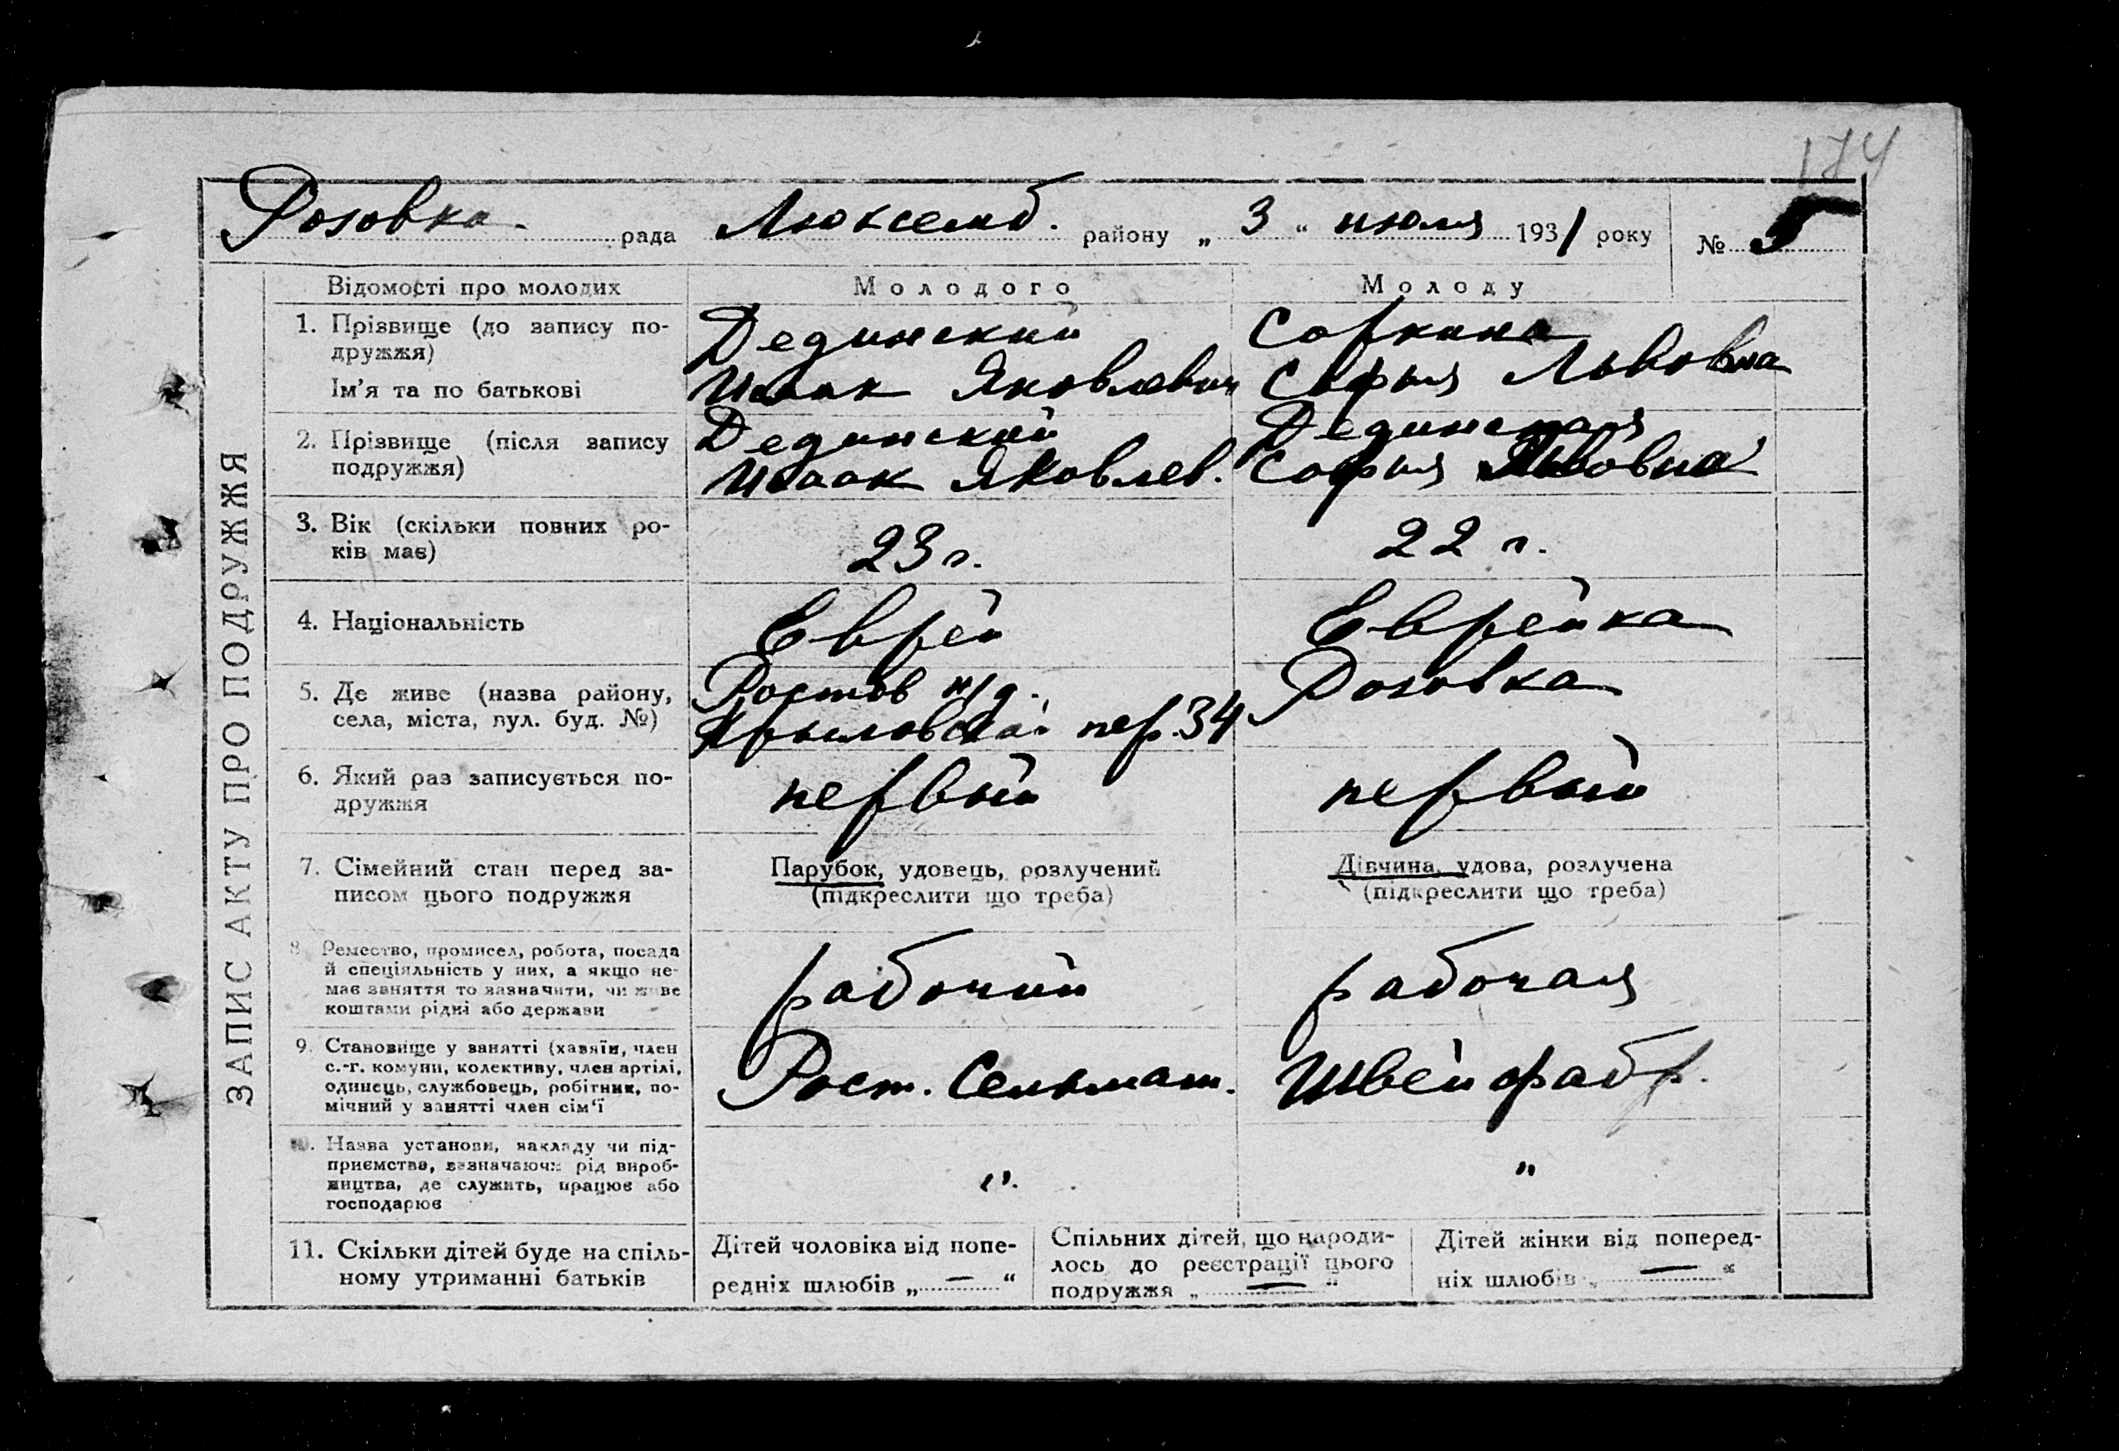 174
Розовка. рада Люксемб. району „ 3 “ июля 1931 року № 5
ЗАПИС АКТУ ПРО ПОДРУЖЖЯ
Відомості про молодих
Молодого
Молоду
1. Прізвище (до запису по-
дружжя)
Ім'я та по батькові
Дединский
Исаак Яковлевич
Соркина
Софья Львовна
2. Прізвище (після запису
подружжя)
Дединский
Исаак Яковлев.
Дединская
Софья Львовна
3. Вік (скільки повних ро-
ків має)
23 г.
22 г.
4. Національність
Еврей
Еврейка
5. Де живе (назва району,
села, міста, вул. буд. №)
Ростов н/д.
Крыловской пер. 34
Розовка
6. Який раз записується по-
дружжя
первый
первый
7. Сімейний стан перед за-
писом цього подружжя
Парубок, удовець, розлучений
(підкреслити що треба)
Дівчина, удова, розлучена
(підкреслити що треба)
8. Ремество, промисел, робота, посада
й спеціяльність у них, а якщо не-
має заняття то зазначити, чи живе
коштами рідні або держави
рабочий
рабочая
9. Становище у занятті (хазяїн, член
с.-г. комуни, колективу, член артілі,
одинець, службовець, робітник, по-
мічний у занятті член сім'ї
Рост. Сельмаш.
Швейфабр.
10. Назва установи, закладу чи під-
приємства, зазначаючи рід вироб-
ництва, де служить, працює або
господарює
"
"
11. Скільки дітей буде на спіль-
ному утриманні батьків
Дітей чоловіка від попе-
редніх шлюбів „ — “
Спільних дітей, що народи-
лось до реєстрації цього
подружжя „ — “
Дітей жінки від поперед-
ніх шлюбів „ — “